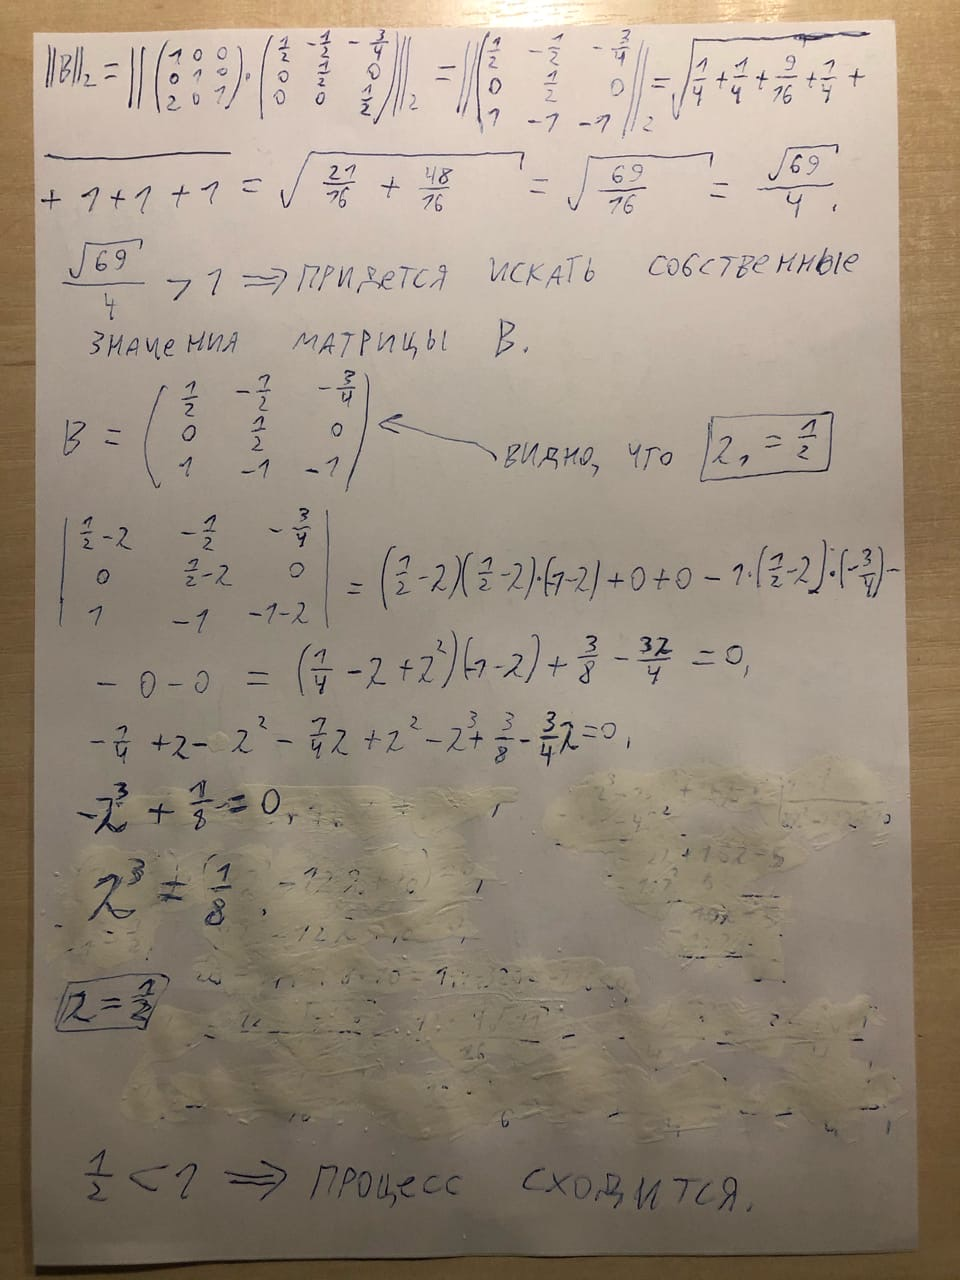 ||B||₂ = ||(1 0 0; 0 1 0; 2 0 1) · (1/2 -1/2 -3/4; 0 1/2 0; 0 0 1/2)||₂ = ||(1/2 -1/2 -3/4; 0 1/2 0; 1 -1 -1)||₂ = √(1/4 + 1/4 + 9/16 + 1/4 +
+ 1 + 1 + 1) = √(21/16 + 48/16) = √(69/16) = √69/4.
√69/4 > 1 ⇒ ПРИДЕТСЯ ИСКАТЬ СОБСТВЕННЫЕ
ЗНАЧЕНИЯ МАТРИЦЫ B.
B = (1/2 -1/2 -3/4; 0 1/2 0; 1 -1 -1) ← ВИДНО, ЧТО λ₁ = 1/2
|1/2-λ -1/2 -3/4; 0 1/2-λ 0; 1 -1 -1-λ| = (1/2-λ)(1/2-λ)·(-1-λ) + 0 + 0 - 1·(1/2-λ)·(-3/4) -
- 0 - 0 = (1/4 - λ + λ²)(-1-λ) + 3/8 - 3λ/4 = 0,
-1/4 + λ - λ² - 1/4λ + λ² - λ³ + 3/8 - 3/4λ = 0,
-λ³ + 1/8 = 0,
λ³ = 1/8.
λ = 1/2
1/2 < 1 ⇒ ПРОЦЕСС СХОДИТСЯ.